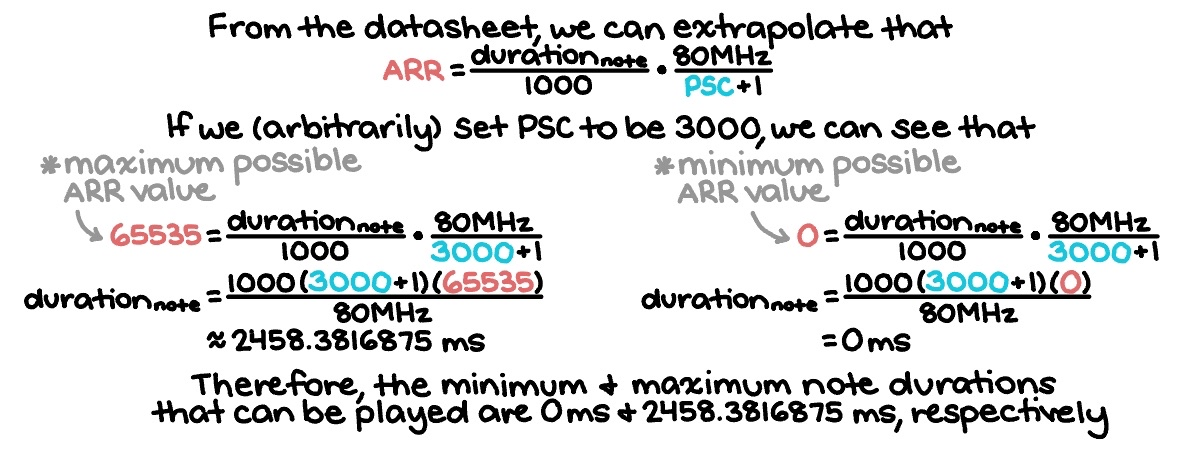 From the datasheet, we can extrapolate that
ARR = duration_note / 1000 • 80MHz / PSC+1
If we (arbitrarily) set PSC to be 3000, we can see that
*maximum possible
ARR value
65535 = duration_note / 1000 • 80MHz / 3000+1
duration_note = 1000(3000+1)(65535) / 80MHz
≈ 2458.3816875 ms
*minimum possible
ARR value
0 = duration_note / 1000 • 80MHz / 3000+1
duration_note = 1000(3000+1)(0) / 80MHz
= 0ms
Therefore, the minimum & maximum note durations
that can be played are 0ms & 2458.3816875 ms, respectively